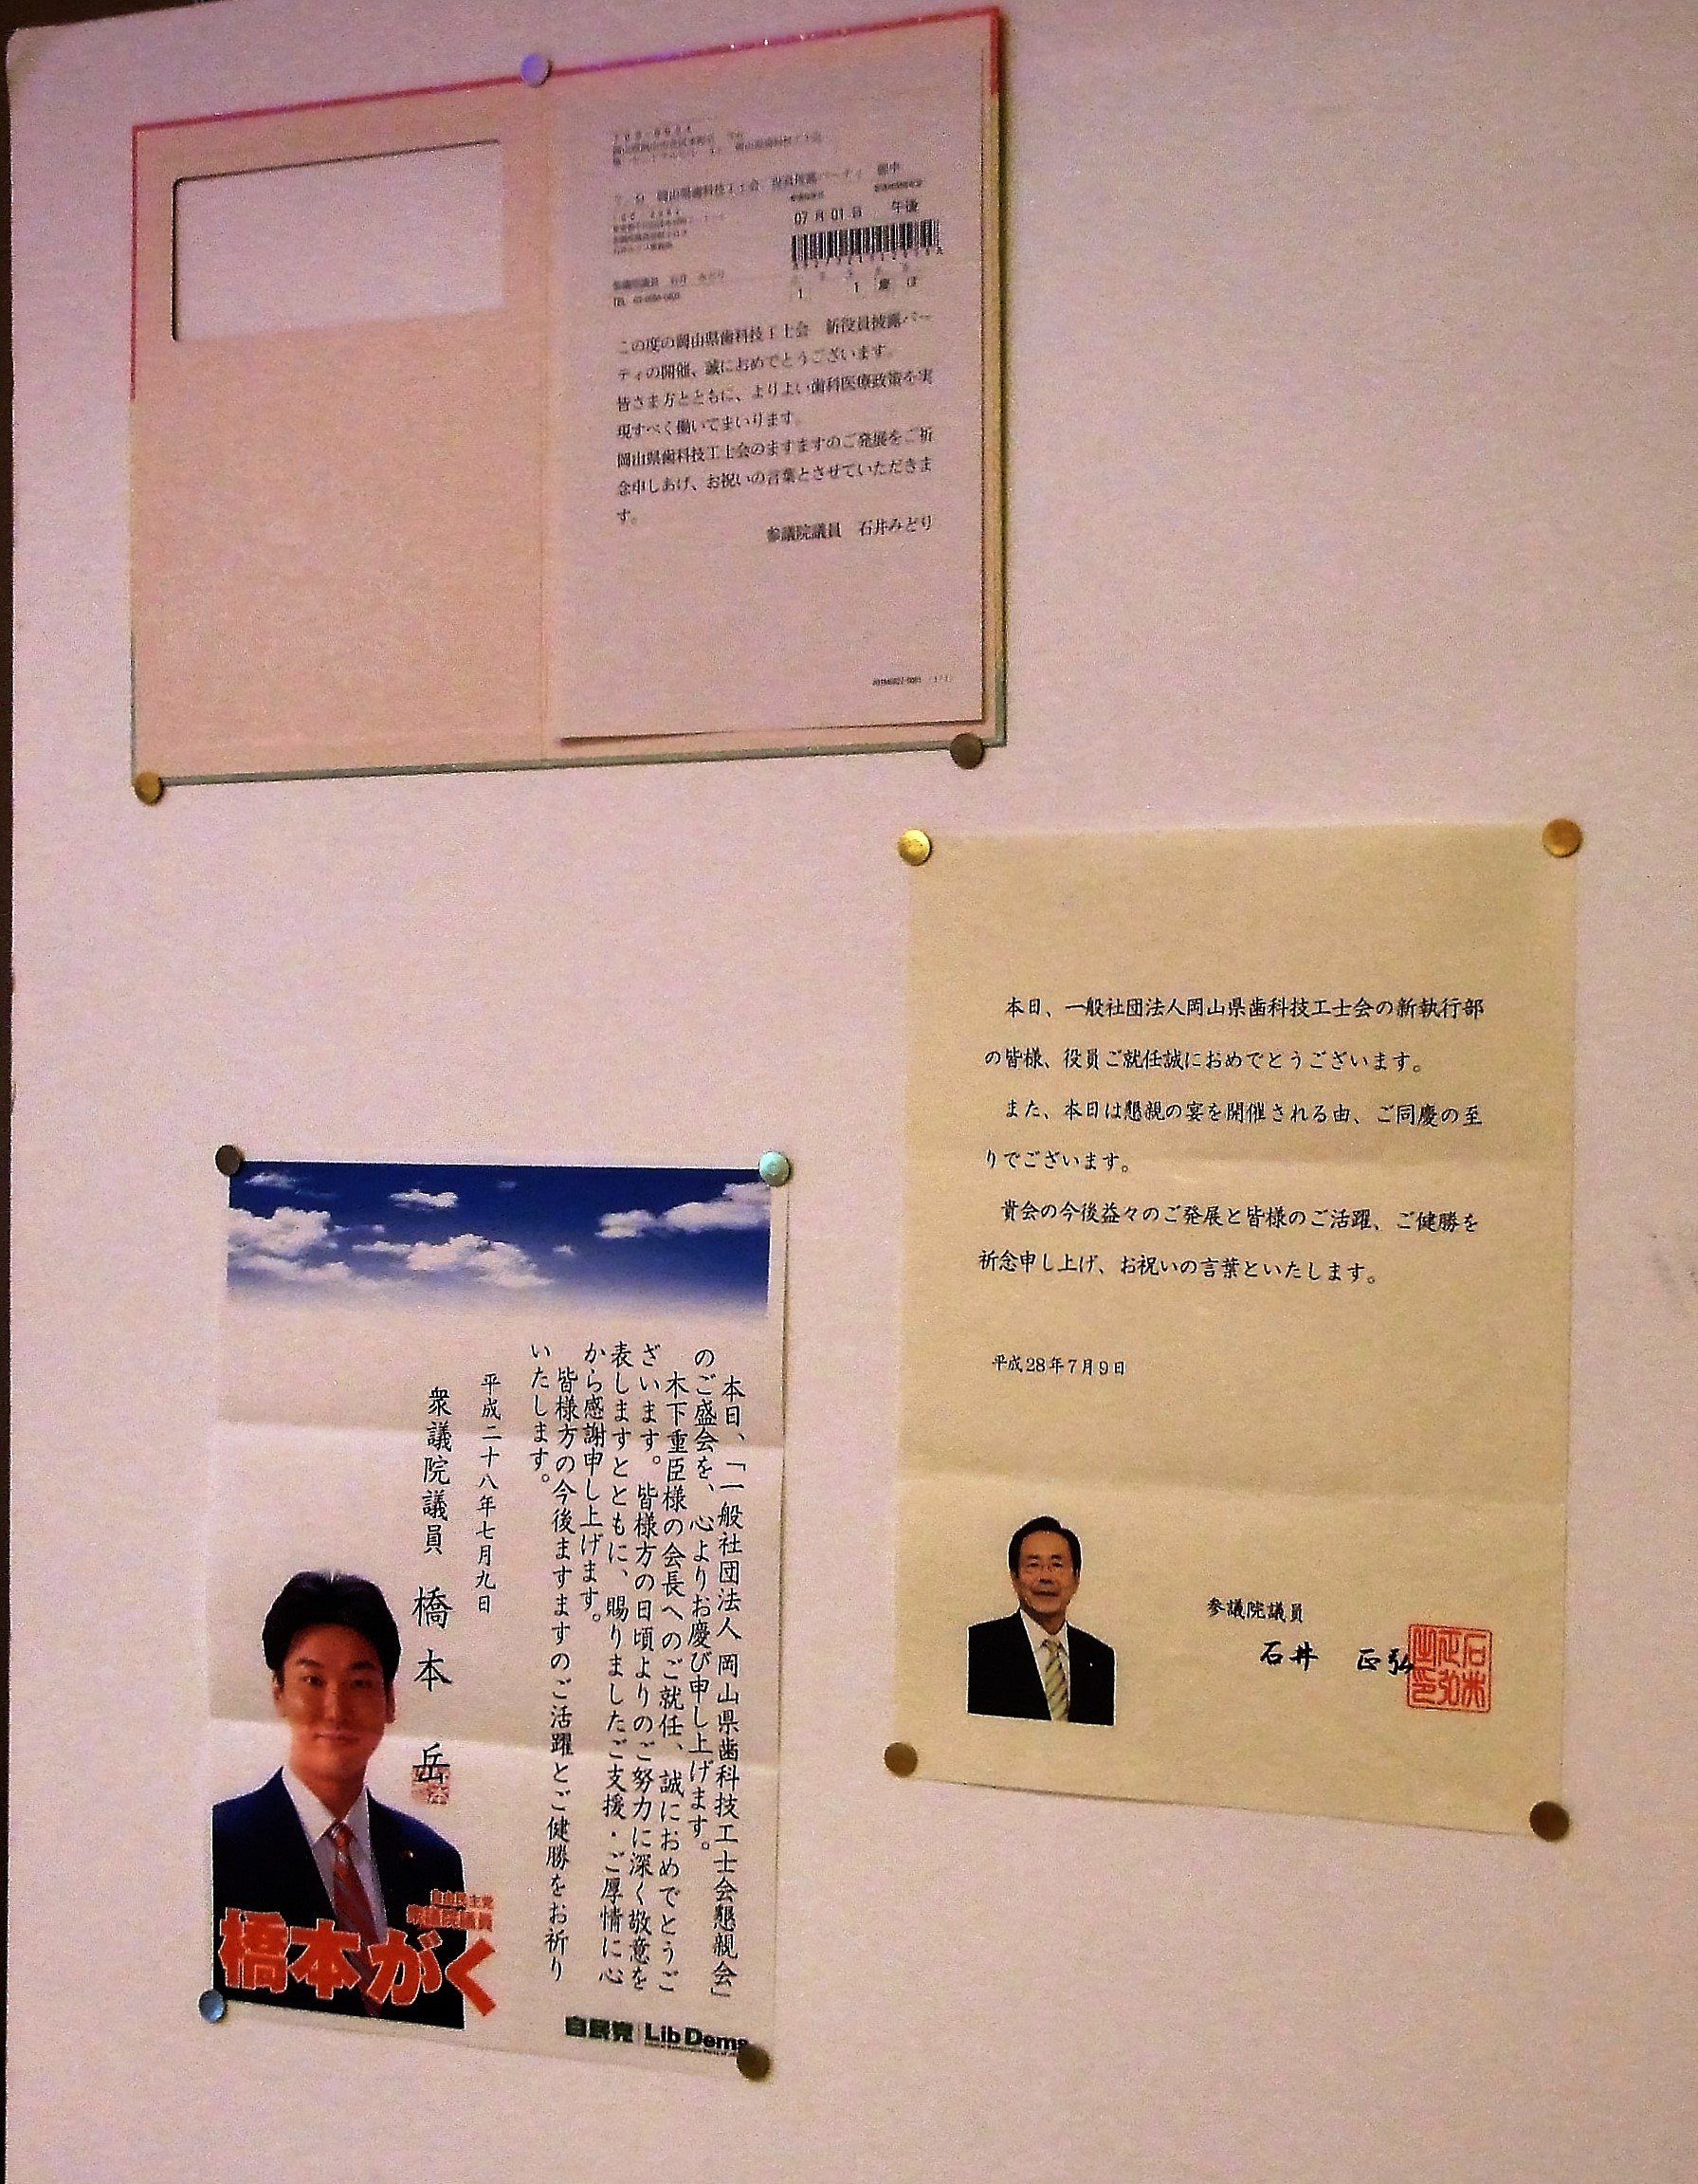 07月01日 午後
1 1 慶 ほ
この度の岡山県歯科技工士会 新役員披露パー
ティの開催、誠におめでとうございます。
皆さま方とともに、よりよい歯科医療政策を実
現すべく働いてまいります。
岡山県歯科技工士会のますますのご発展をご祈
念申しあげ、お祝いの言葉とさせていただきま
す。
参議院議員 石井みどり
本日、一般社団法人岡山県歯科技工士会の新執行部
の皆様、役員ご就任誠におめでとうございます。
また、本日は懇親の宴を開催される由、ご同慶の至
りでございます。
貴会の今後益々のご発展と皆様のご活躍、ご健勝を
祈念申し上げ、お祝いの言葉といたします。
平成28年7月9日
参議院議員
石井 正弘
本日、「一般社団法人 岡山県歯科技工士会懇親会」
のご盛会を、心よりお慶び申し上げます。
木下重臣様の会長へのご就任、誠におめでとうご
ざいます。皆様方の日頃よりのご努力に深く敬意を
表しますとともに、賜りましたご支援・ご厚情に心
から感謝申し上げます。
皆様方の今後ますますのご活躍とご健勝をお祈り
いたします。
平成二十八年七月九日
衆議院議員 橋本 岳
自由民主党
衆議院議員
橋本がく
自民党 Lib Dems